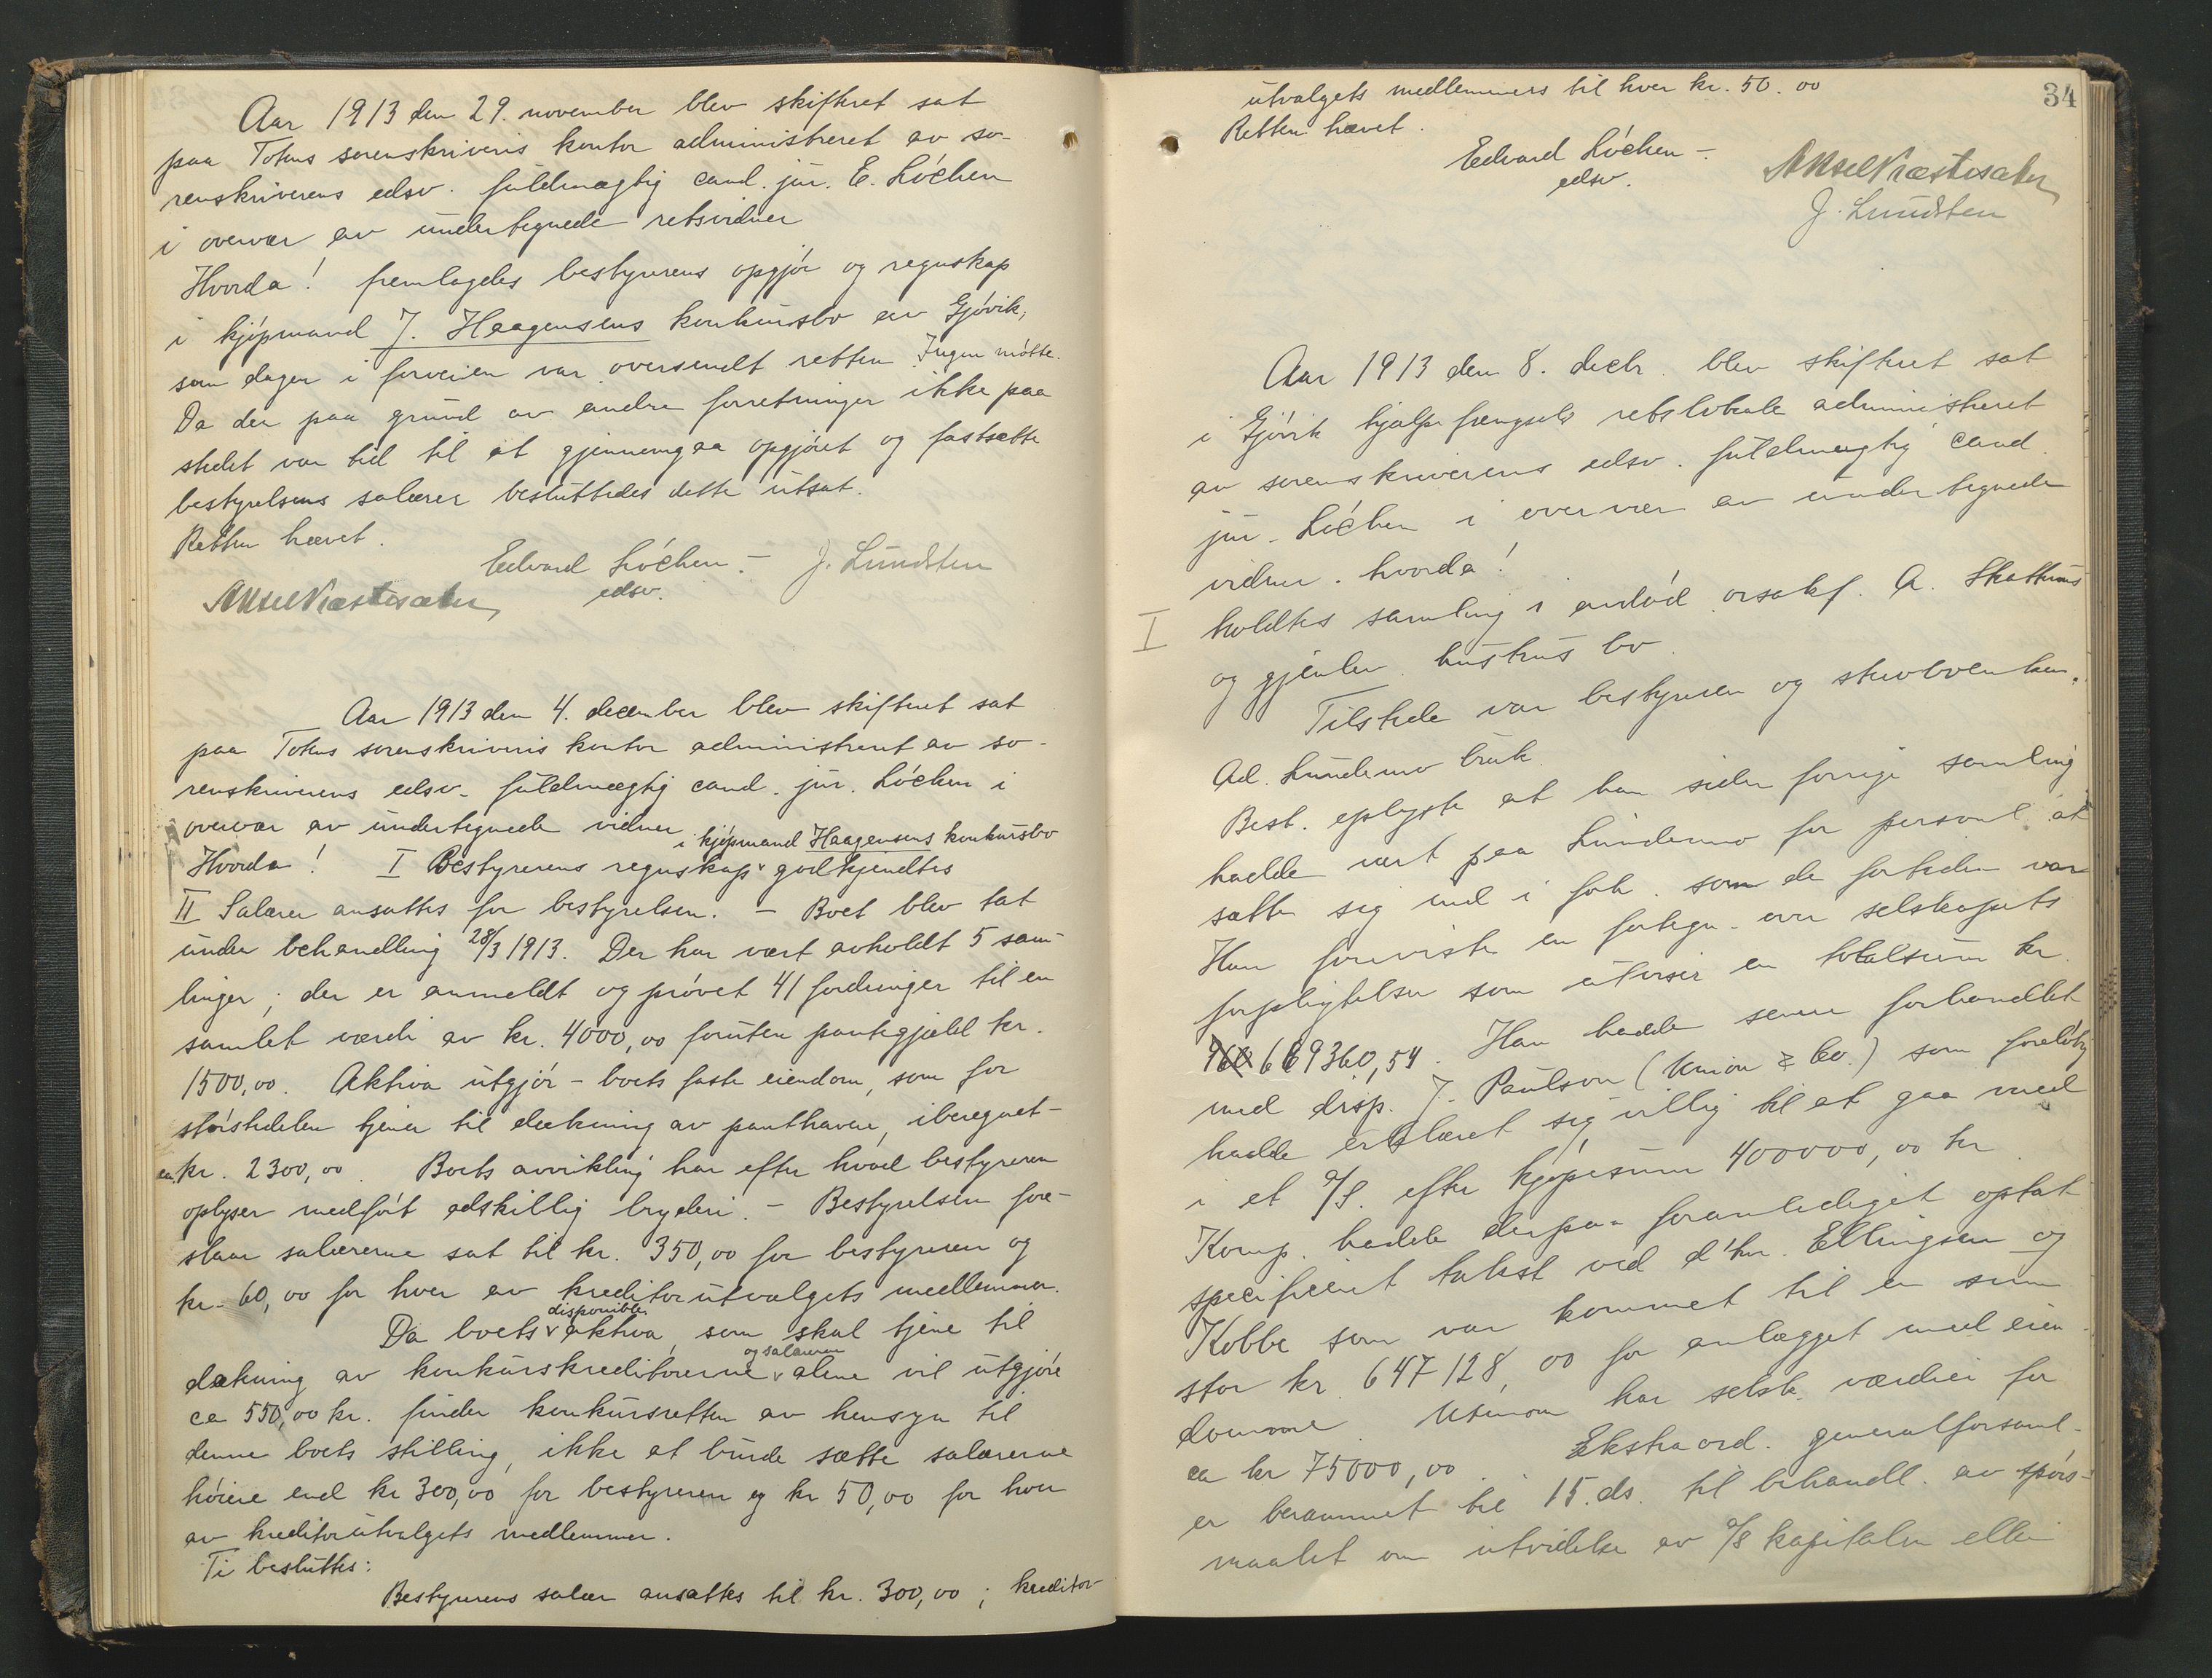 Aar 1913 den 29. november blev skifteret sat
paa Totens sorenskriveris kontor administreret av so-
renskriverens edsv. fuldmægtig cand. jur. E. Lóchen
i overvær av undertegnede retsvidner
Hvorda! fremlagdes bestyrerens opgjór og regnskap
i kjópmand J. Haagensens konkursbo av Gjóvik,
som dagen i forveien var oversendt retten. Ingen mótte.
Da der paa grund av andre forretninger ikke paa
stedet var tid til at gjennemgaa opgjóret og fastsætte
bestyrelsens salærer besluttedes dette utsat.
Retten hævet.
Edvard Lóchen. - J. Lundsten
edsv.
Aksel Præstesæter
Aar 1913 den 4. december blev skifteret sat
paa Totens sorenskriveris kontor administreret av so-
renskriverens edsv. fuldmægtig cand. jur. Lóchen i
overvær av undertegnede vidner
i kjópmand Haagensens konkursbo
Hvorda! I Bestyrerens regnskap godkjendtes
II Salærer ansattes for bestyrelsen. - Boet blev tat
under behandling 28/3 1913. Der har vært avholdt 5 sam-
linger; der er anmeldt og próvet 41 fordringer til en
samlet værdi av kr. 4000,00 foruten pantegjæld kr.
1500,00. Aktiva utgjór - boets faste eiendom, som for
stórstedelen tjener til dækning av panthavere, iberegnet -
ca. kr. 2300,00. Boets avvikling har efter hvad bestyreren
oplyser medfórt adskillig bryderi. - Bestyrelsen fore-
slaar salærerne sat til kr. 350,00 for bestyreren og
kr. 60,00 for hver av kreditorutvalgets medlemmer.
disponible
Da boets aktiva, som skal tjene til
og salærerne
dækning av konkurskreditorerne alene vil utgjóre
ca 550,00 kr. finder konkursretten av hensyn til
denne boets stilling, ikke at burde sætte salærerne
hóiere end kr 300,00 for bestyreren og kr 50,00 for hver
av kreditorutvalgets medlemmer.
Ti besluttes:
Bestyrerens salær ansattes til kr. 300,00; kreditor-
34
utvalgets medlemmers til hver kr. 50.00
Retten hævet.
Edvard Lóchen -
edsv.
Aksel Præstesæter
J. Lundsten
Aar 1913 den 8. decbr. blev skifteret sat
i Gjóvik hjælpefængsels retslokale administreret
av sorenskriverens edsv. fuldmægtig cand.
jur. Lóchen i overvær av undertegnede
vidner. hvorda!
I holdtes samling i avdód orsakf. A. Skattums
og gjenlev. hustrus bo.
Tilstede var bestyreren og
Ad. Lundemo bruk.
Best. oplyste at han siden forrige samling
hadde vært paa Lundemo for personl. at
sætte sig ind i forh. som de fortiden var
Han foreviste en fortegn. over selskapets
forpligtelser som utviser en totalsum kr.
669360,54. Han hadde senere forhandlet
med disp. J. Paulson (Union & Co.) som forelóbig
hadde erklæret sig villig til at gaa med
i et A/S. efter kjópesum 400000,00 kr.
Komp. hadde derpaa foranlediget optat
specificeret takst ved d'hrr. Ellingsen og
Kobbe som var kommet til en sum
stor kr. 647128,00 for anlægget med eien-
domme. Utenom har selsk. værdier for
ca kr 75000,00. Ekstraord. generalforsaml.
er berammet til 15. ds. til behandl. av spórs-
maalet om utvidelse av A/S kapitalen eller